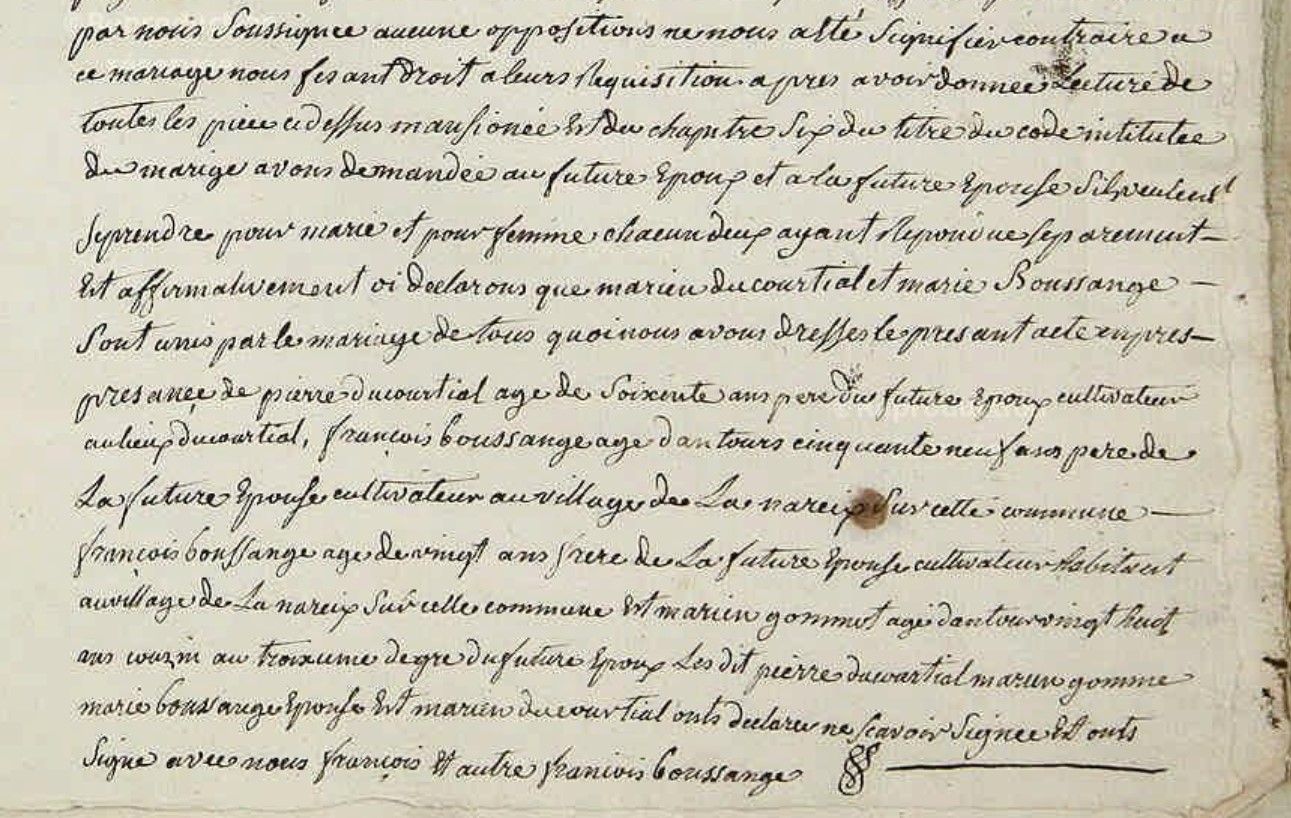 par nous Soussignee aucune oppositions ne nous alté Signifier contraire a
ce mariage nous fesant droit a leurs Requisition apres avoir donnee Lecture de
toutes les piece cidessus mansionée Est du chapitre Six du titre du code intitulee
du marige avons demandée au future Epoux et a la future Epouse Silveulent
Syprendre pour marie et pour femme chacun deux ayant Reponue separement
Est affirmativement oi declarons que marien ducourtial et marie Boussange
Sont unis par le mariage de tous quoi nous avons dresses le presant acte en pres-
presance de pierre ducourtial age de Soixente ans pere du future Epoux cultivateur
au lieux ducourtial, françois boussange age dan tours cinquante neuf ans pere de
La future Epouse cultivateur au village de La nareix Sur cette commune
françois boussange age de vingt ans frere de La future Epouse cultivateur habitant
au village de La nareix Sur celle commune Est marien gommot agé dantour vingt huit
ans couzin au troixieme degre du future Epoux Les dit pierre ducourtial marien gomme
marie boussange Epouse Est marien ducourtial onts declaree ne scavoir Signee Est onts
Signe avec nous françois Et autre francois boussange